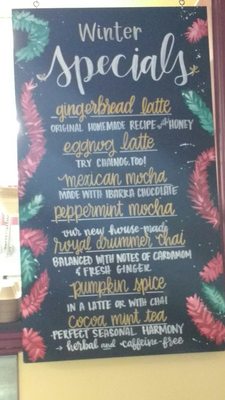 Winter
Specials
gingerbread latte
ORIGINAL HOMEMADE RECIPE with HONEY
eggnog latte
TRY CHAINOG, TOO!
mexican mocha
MADE WITH IBARRA CHOCOLATE
peppermint mocha
our new house-made
royal drummer chai
BALANCED WITH NOTES OF CARDAMOM
& FRESH GINGER
pumpkin spice
IN A LATTE OR WITH CHAI
cocoa mint tea
PERFECT SEASONAL HARMONY
→ herbal and caffeine-free